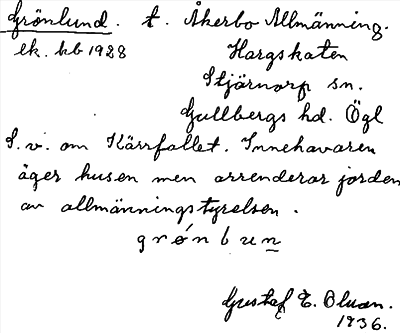 Grönlund. t. Åkerbo Allmänning.
ek. kb 1928 Hargskaten
Stjärnorp sn.
Gullbergs hd. Ögl
S.v. om Kärrfallet. Innehavaren
äger husen men arrenderar jorden
av allmänningstyrelsen.
grónbun
Gustaf E. Olsson.
1936.